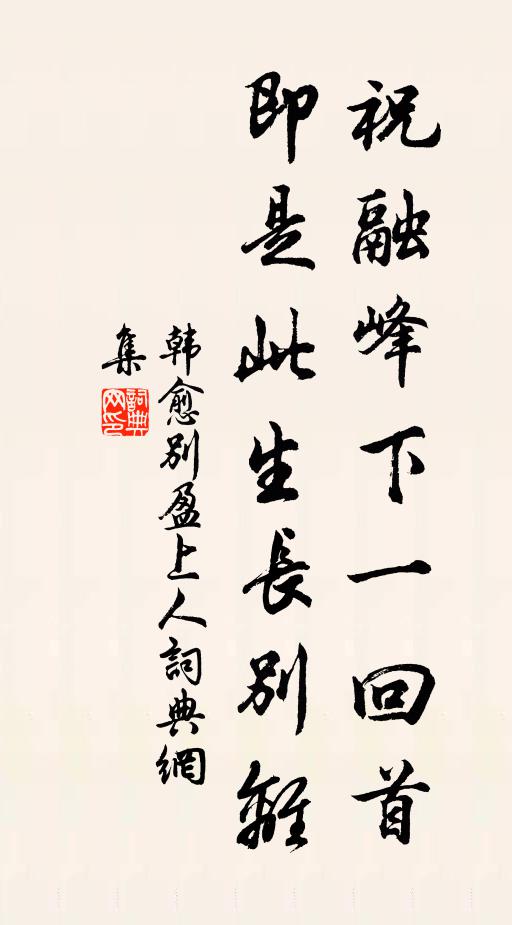 祝融峰下一回首
即是此生長別離
韩愈別盈上人詞典網
集
詞典网印